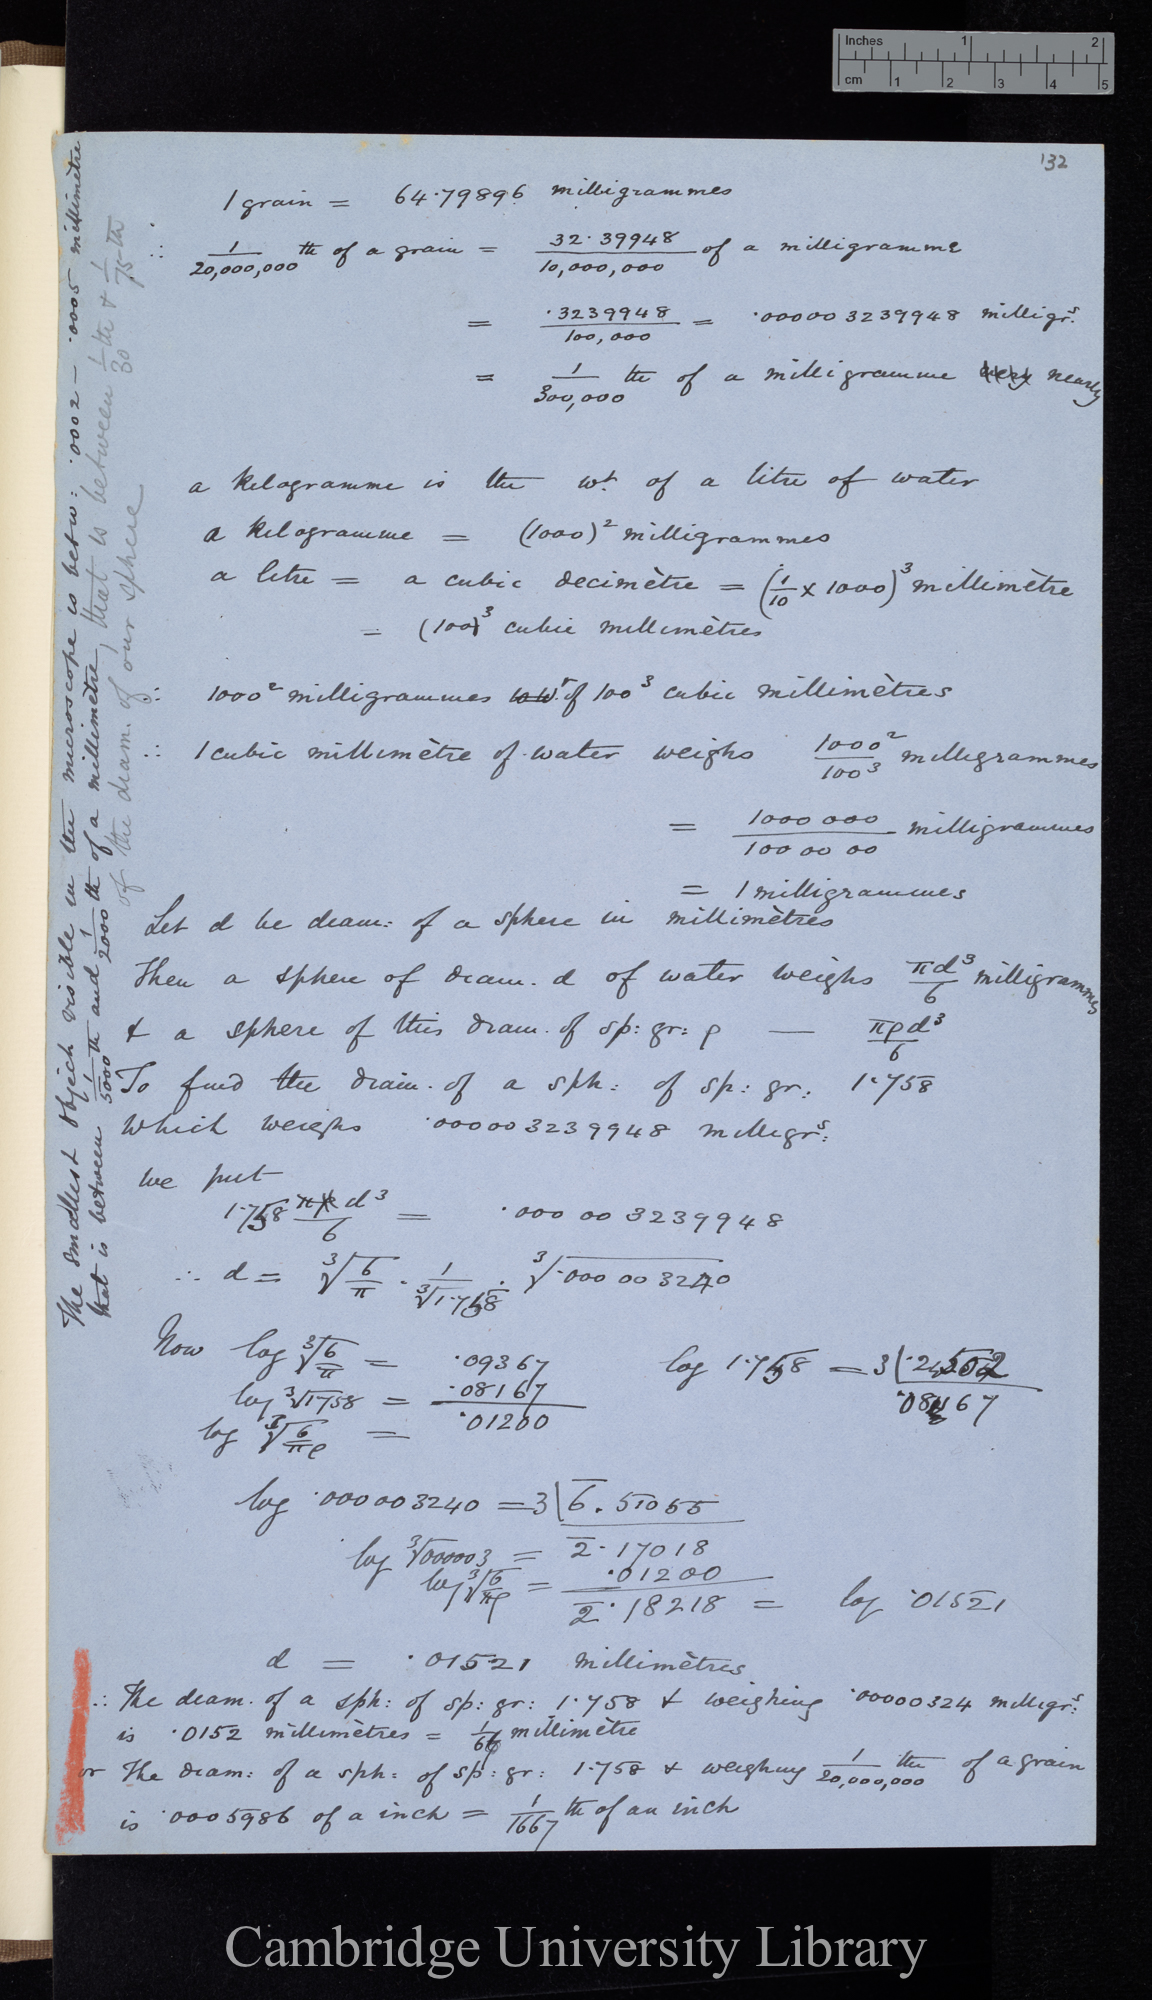 Inches 1 2
cm 1 2 3 4 5
132
1 grain = 64·79896 milligrammes
∴ 1/20,000,000 th of a grain = 32·39948/10,000,000 of a milligramme
= ·3239948/100,000 = ·000003239948 milligrs.
= 1/300,000 th of a milligramme very nearly
a kilogramme is the wt. of a litre of water
a kilogramme = (1000)² milligrammes
a litre = a cubic decimètre = (1/10 × 1000)³ millimètre
= (100)³ cubic millimètres
∴ 1000² milligrammes is wt. of 100³ cubic millimètres
∴ 1 cubic millimètre of water weighs 1000²/100³ milligrammes
= 1000 000/100 00 00 milligrammes
= 1 milligrammes
Let d be diam: of a sphere in millimètres
Then a sphere of diam. d of water weighs πd³/6 milligrammes
& a sphere of this diam. of sp: gr: ρ — πρd³/6
To find the diam. of a sph: of sp: gr: 1·758
which weighs ·000003239948 milligrs:
we put
1·758 πd³/6 = ·000 00 3239948
∴ d = ³√6/π · 1/³√1·758 · ³√·000 00 3240
Now log ³√6/π = ·09367
log 1·758 = 3|·24502
log ³√1758 = ·08167
·08167
log ³√6/πρ = ·01200
log ·00000 3240 = 3|6̄.51055
log ³√000003 = 2̄·17018
log ³√6/πρ = ·01200
2̄·18218 = log ·01521
d = ·01521 millimètres
∴ The diam. of a sph: of sp: gr: 1·758 & weighing ·00000324 milligrs:
is ·0152 millimètres = 1/66 millimètre
or The diam: of a sph: of sp: gr: 1·758 & weighing 1/20,000,000 th of a grain
is ·0005986 of a inch = 1/1667 th of an inch
The smallest object visible in the microscope is betw: ·0002 – ·0005 millimètre
that is between 1/5000 th and 1/2000 th of a millimètre, that is between 1/30 th & 1/75 th
of the diam. of our sphere
Cambridge University Library